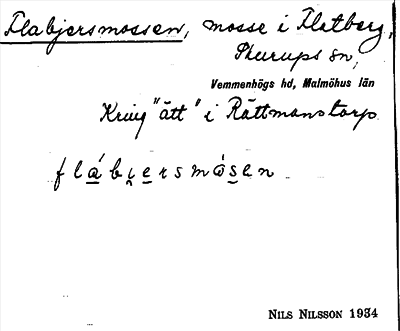 Flabjersmossen, mosse i Flatberg,
Skurups sn,
Vemmenhögs hd, Malmöhus län
Kring "ätt" i Rättmanstorp
flábi̯ersmósen
NILS NILSSON 1934